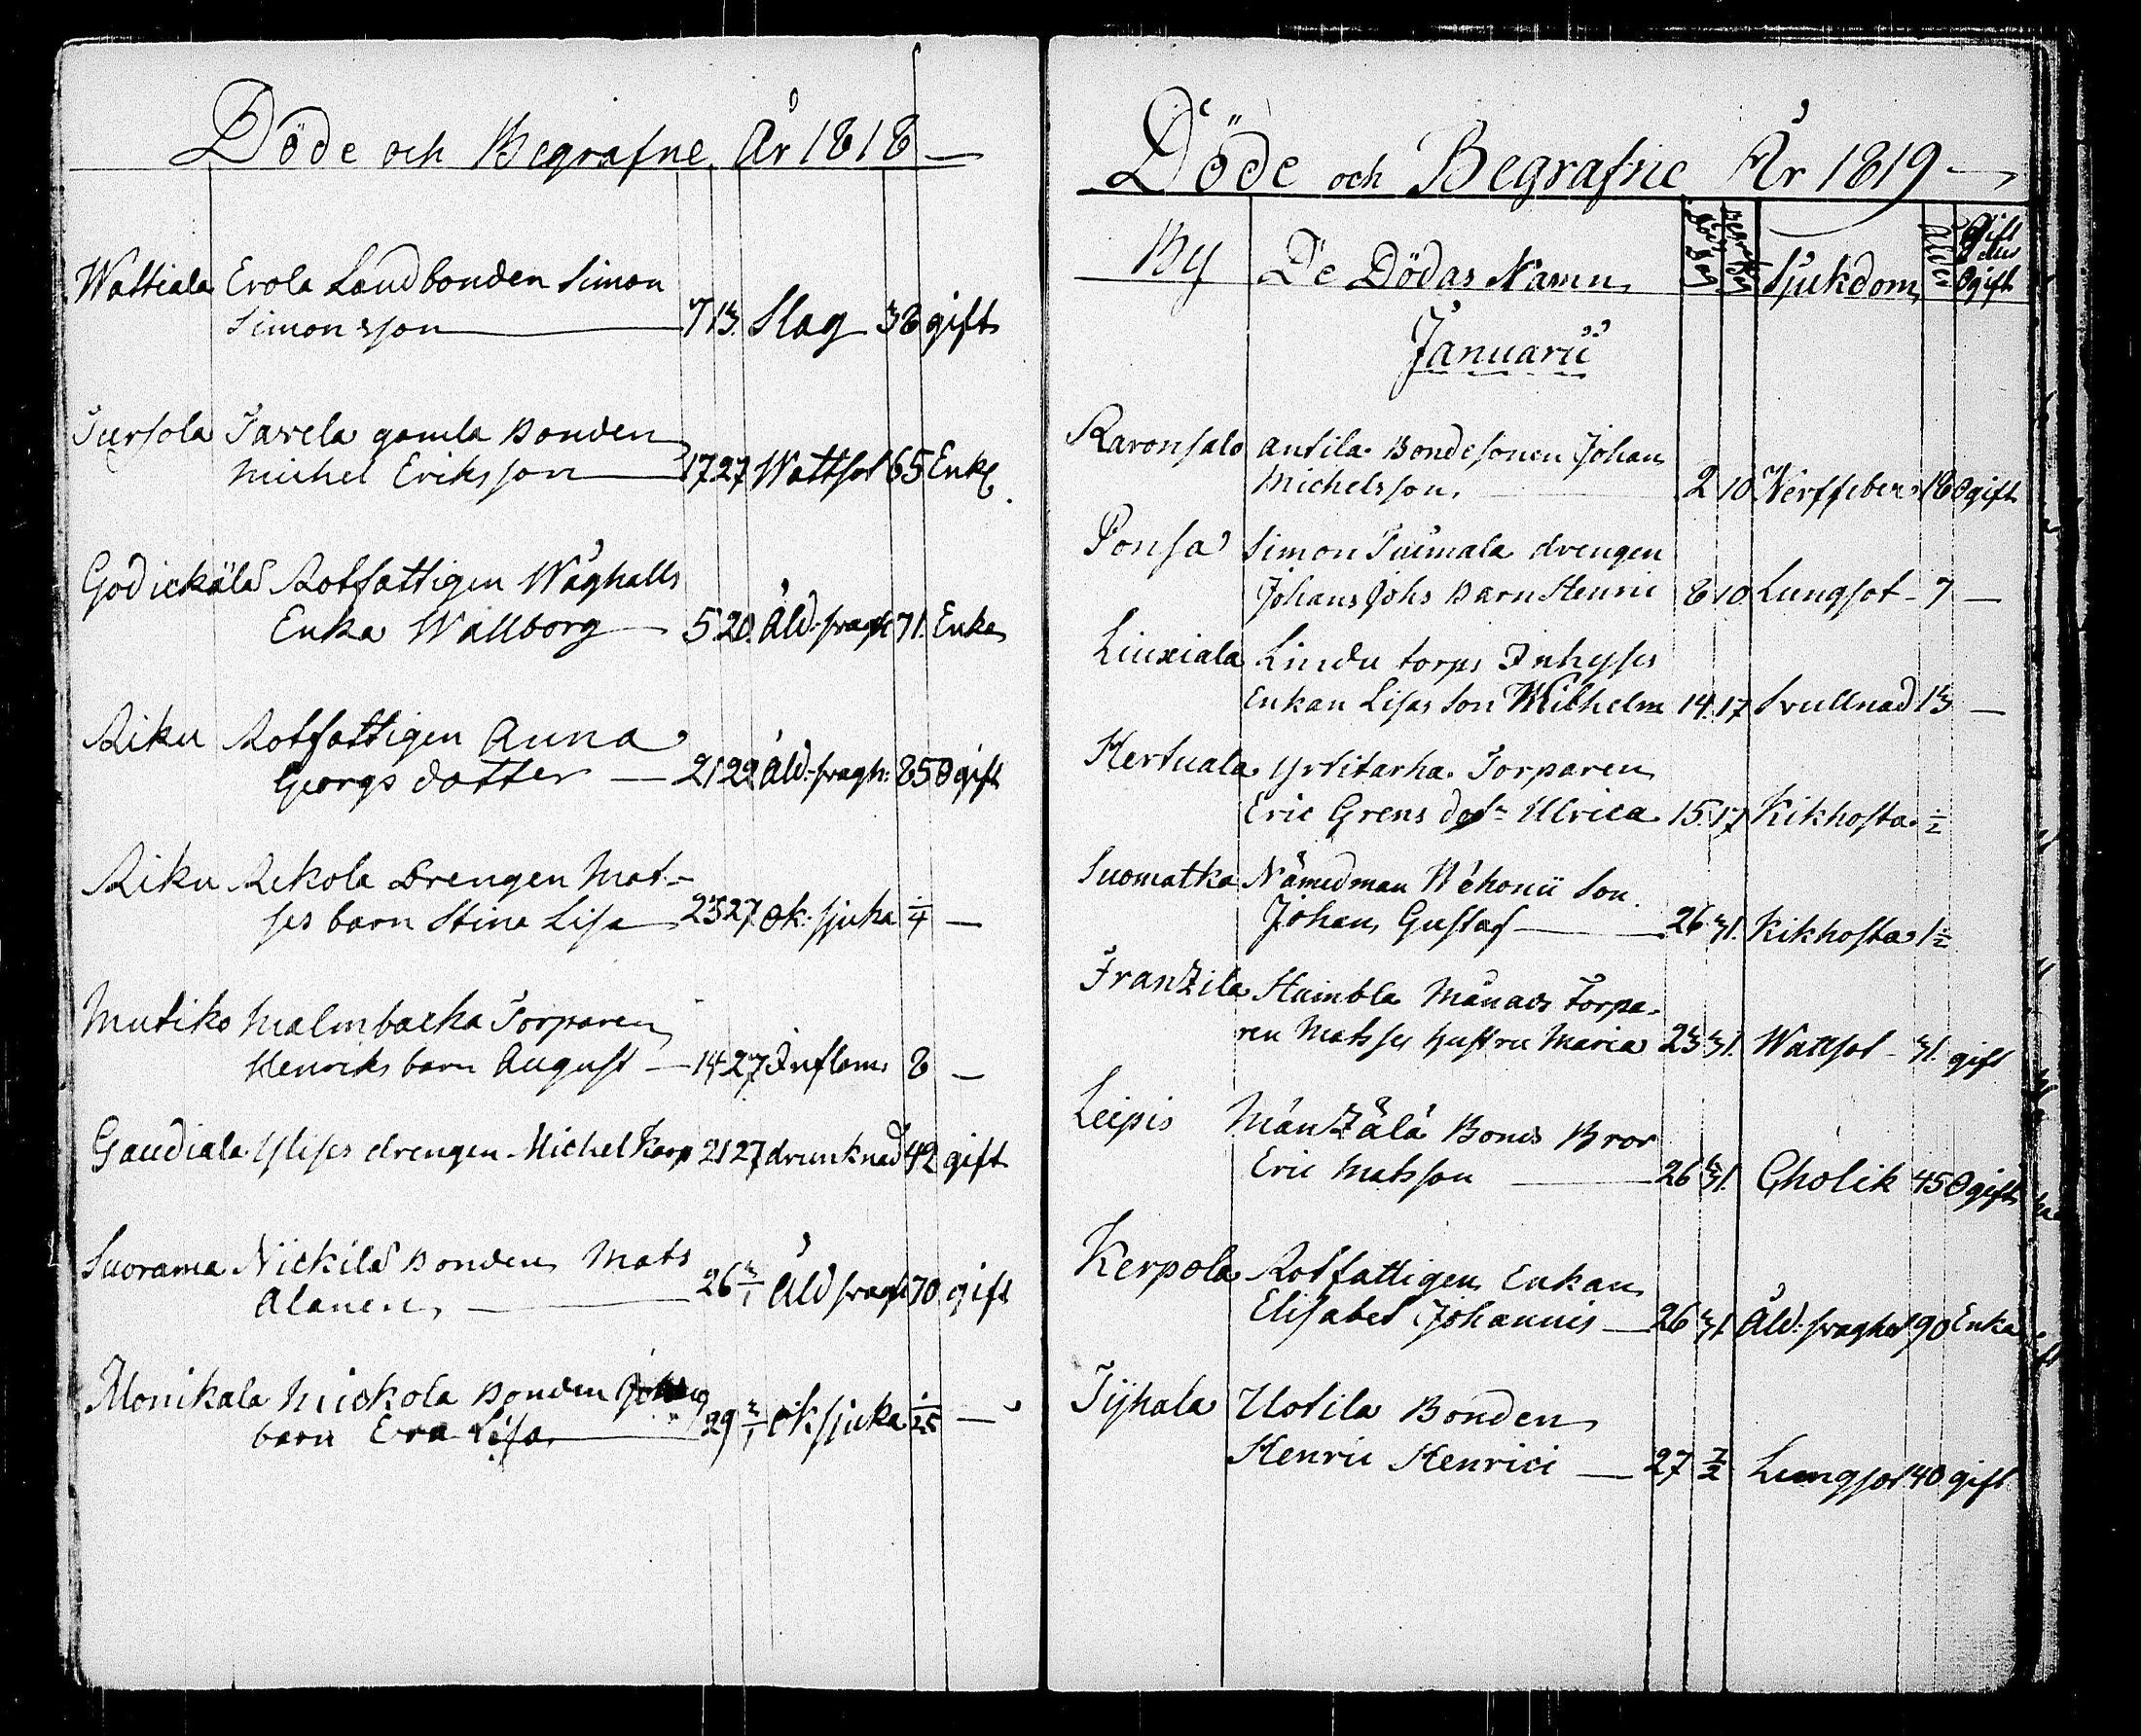 Döde och Begrafne År 1818
Wattiala Erola Landbonden Simon
Simonsson 7 13. Slag 38 gift
Tursola Tavela gamla Bonden
Michel Eriksson 17 27 Wattsot 65 Enkl.
Godickälä Rotfattigen Wåghalls
Enka Wallborg 5 20. Åld:svagh 71. Enka
Riku Rotfattigen Anna
Georgs dotter 21 22 Åld:svagh: 85 Ogift
Riku Rekola Drengen Mat-
ses barn Stina Lisa 23 27 Ok: sjuka 1/4 —
Mutiko Malmbacka Torparen
Henriks barn August 14 27 Inflam: 8 —
Gaudiala Ylises drengen Michel Karp 21 27 drunknad 42 gift
Suorama Nickilä Bonden Mats
Alanen, 26 3/1 Åld svagh 70 gift
Monikala Mickola Bonden Johans
barn Eva Lisa 29 3/1 Ok sjuka 1/25 —
Döde och Begrafne År 1819
By De Dödas Namn Död dag Begrafn dag Sjukdom Ålder Gift eller Ogift
Januarii
Raronsalo Antila Bondesonen Johan
Michelsson. 2 10 Nerffeber 18 Ogift
Ponsa Simon Tuimala drengen
Johans Johs Barn Henric 8 10 Lungsot 7 —
Liuxiala Lindu torps Inhyses
Enkan Lisas Son Wilhelm 14. 17 Svullnad 13 —
Hertuala Yrtitarha Torparen
Eric Grens dotr Ulrica 15. 17 Kikhosta 1/2
Suomatka Nämedman Wehonii Son
Johan Gustaf 26 31. Kikhosta 1 1/2
Franzila Humbla Månads Torpa-
ren Matses hustru Maria 23 31. Wattsot 31. gift
Leipis Mänzälä Bonds Bror
Eric Matsson 26 31. Cholik 45 Ogift
Kerpola Rotfattigen Enkan
Elisabet Johannis 26 31 Åld:svaghet 90 Enka
Tijhala Uotila Bonden
Henric Henrici 27 7/2 Lungsot 40 gift